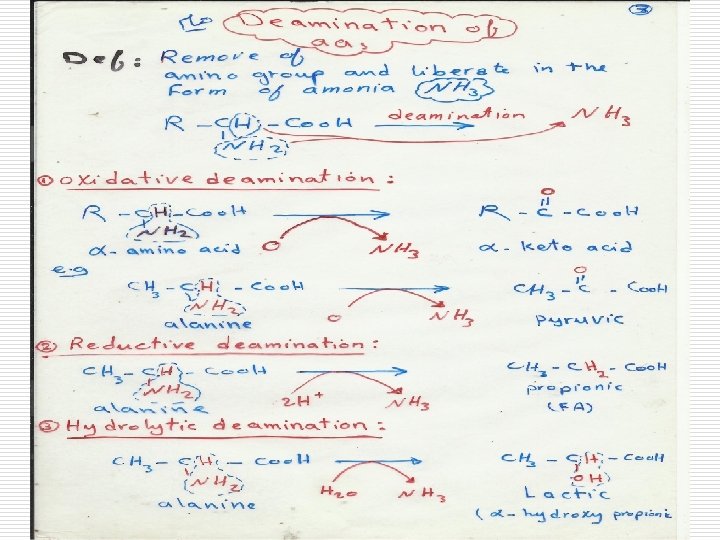 ③
Deamination of
aas
Def: Remove of
amino group and liberate in the
Form of amonia (NH3)
R - CH - COOH deamination NH3
NH2
① Oxidative deamination :
O
R - CH - COOH R - C - COOH
NH2
α- amino acid O NH3 α- Keto acid
e.g O
CH3 - CH - COOH CH3 - C - COOH
NH2
alanine O NH3 pyruvic
② Reductive deamination :
CH3 - CH - COOH CH3 - CH2 - COOH
NH2 propionic
alanine 2H+ NH3 (FA)
③ Hydrolytic deamination :
CH3 - CH - COOH CH3 - CH - COOH
NH2 OH
alanine H2O NH3 Lactic
(α- hydroxy propionic